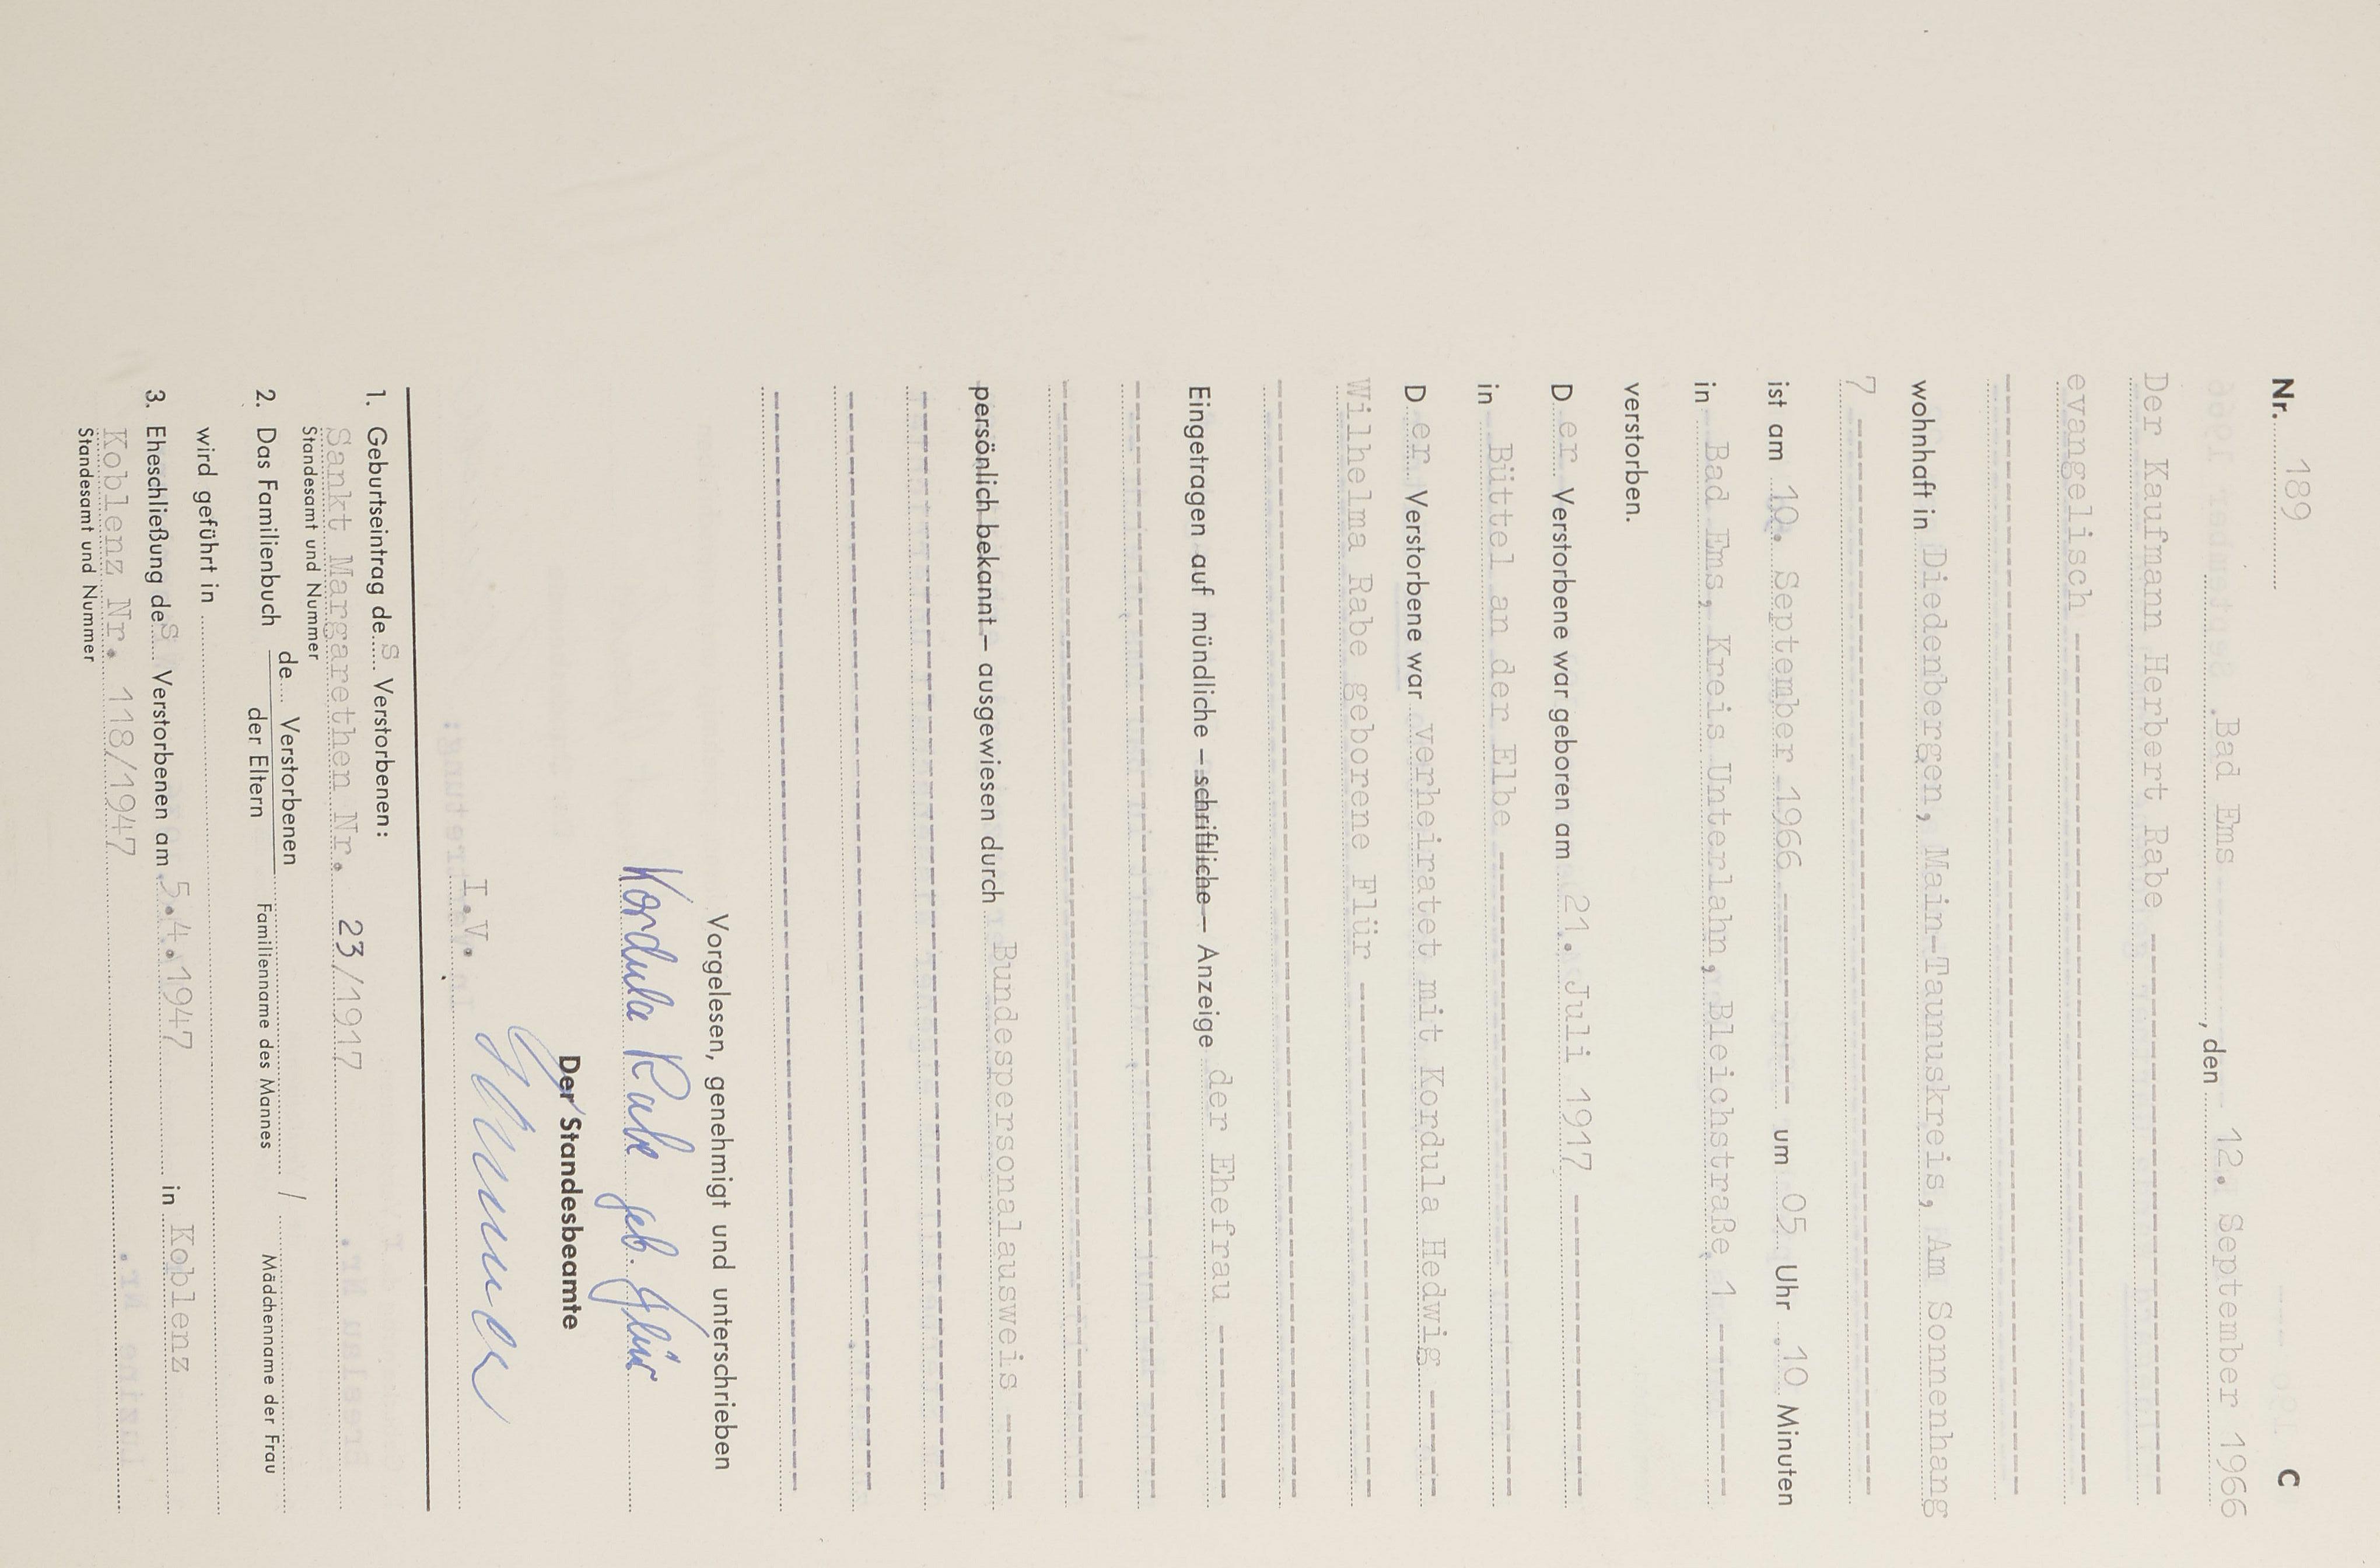 Nr. 189 C
Bad Ems, den 12. September 1966
Der Kaufmann Herbert Rabe
evangelisch
wohnhaft in Diedenbergen, Main-Taunuskreis, Am Sonnenhang
7
ist am 10. September 1966 um 05 Uhr 10 Minuten
in Bad Ems, Kreis Unterlahn, Bleichstraße 1
verstorben.
Der Verstorbene war geboren am 21. Juli 1917
in Büttel an der Elbe
Der Verstorbene war verheiratet mit Kordula Hedwig
Wilhelma Rabe geborene Flür
Eingetragen auf mündliche – schriftliche – Anzeige der Ehefrau
persönlich bekannt – ausgewiesen durch Bundespersonalausweis
Vorgelesen, genehmigt und unterschrieben
Kordula Rabe geb. Flür
Der Standesbeamte
I.V.
1. Geburtseintrag des Verstorbenen:
Sankt Margarethen Nr. 23/1917
Standesamt und Nummer
2. Das Familienbuch de... Verstorbenen /
der Eltern Familienname des Mannes Mädchenname der Frau
wird geführt in
3. Eheschließung des Verstorbenen am 5.4.1947 in Koblenz
Koblenz Nr. 118/1947
Standesamt und Nummer